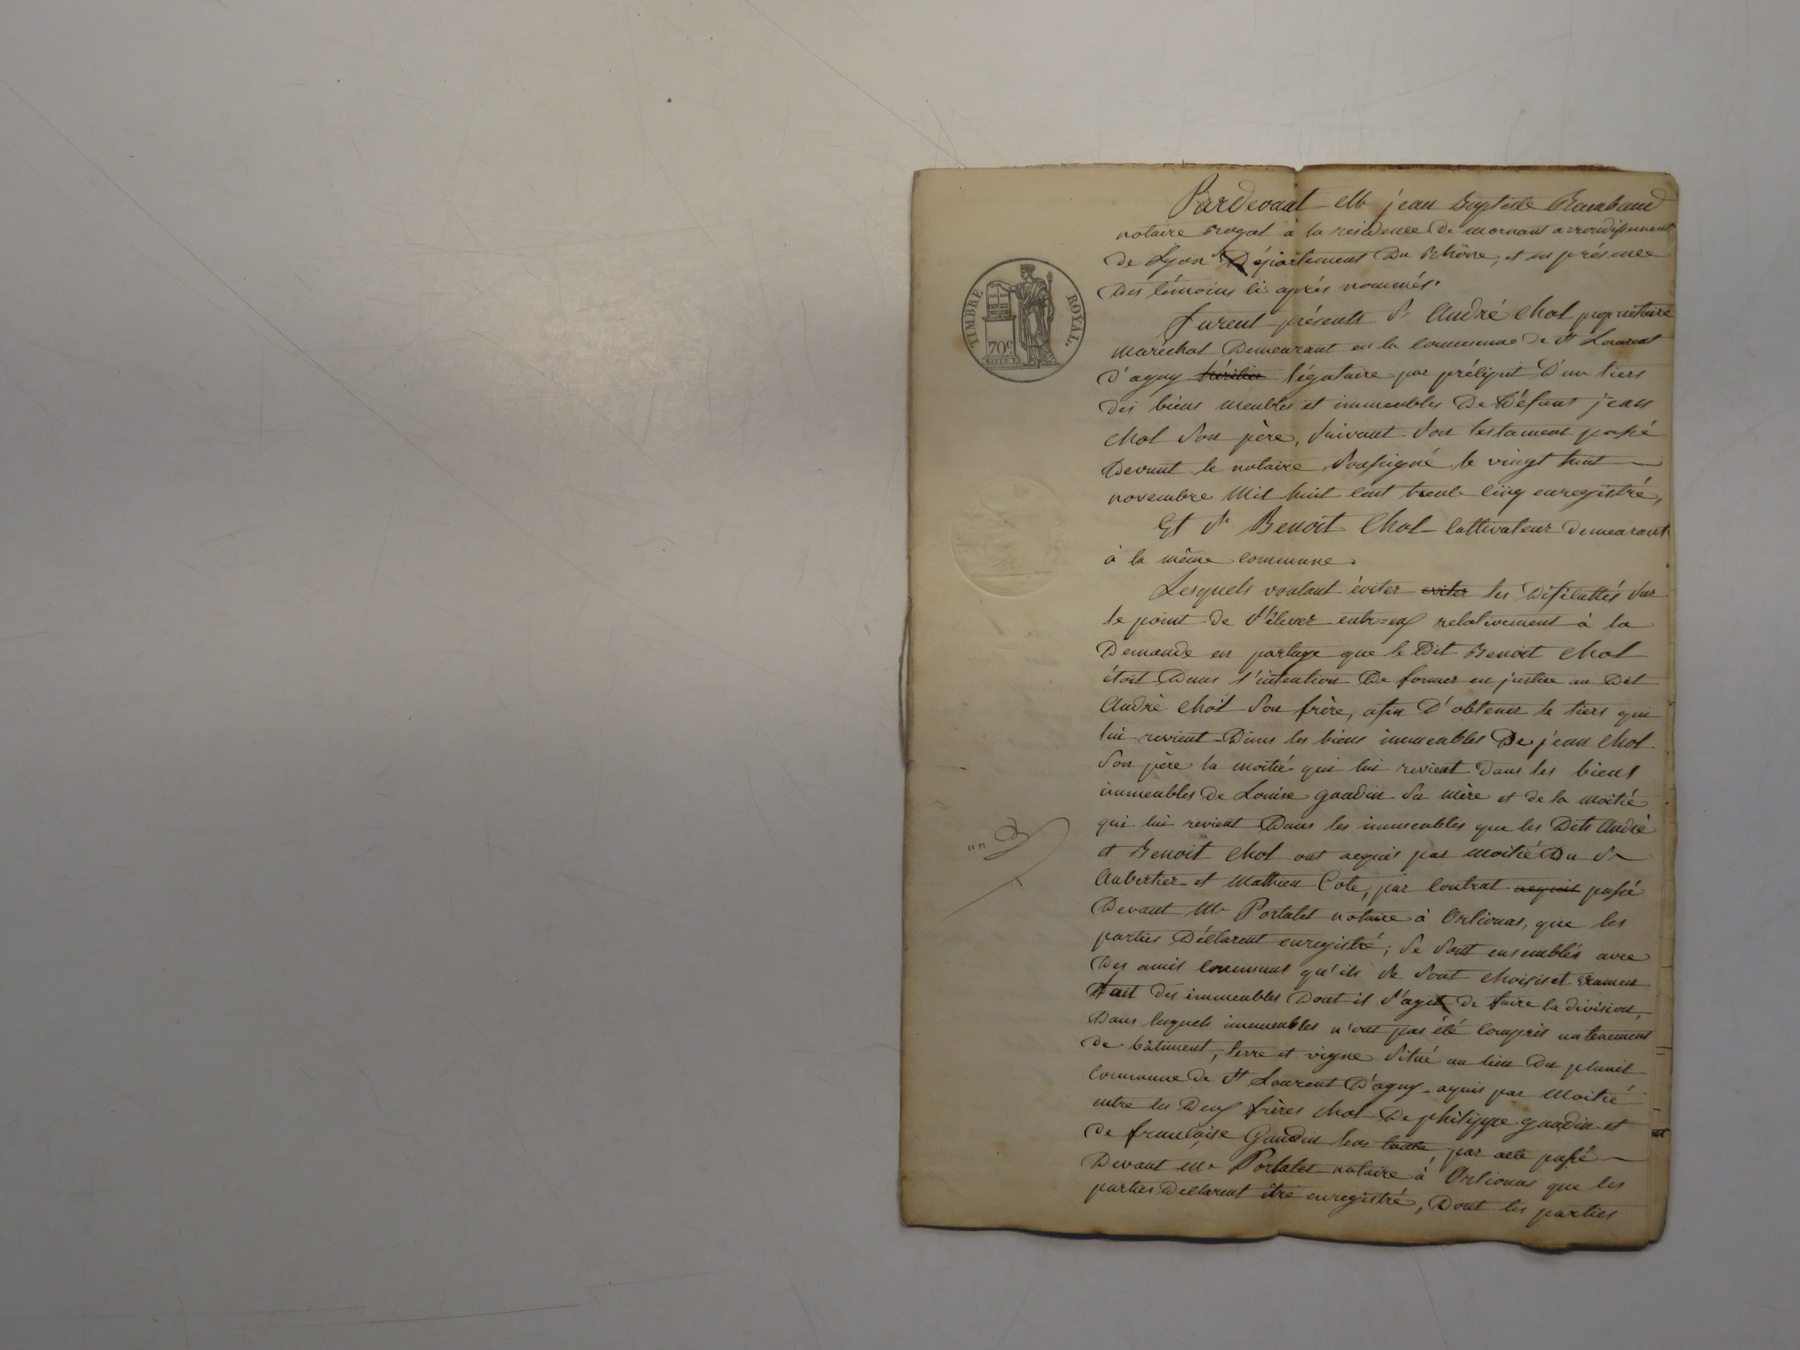 TIMBRE ROYAL.
70c
Pardevant Me jean Baptiste Rambaud
notaire royal à la résidence De mornant arrondissement
de Lyon Département Du Rhône, et en présence
Des témoins ci après nommés.
Furent présents Sr André Chol propriétaire
maréchal Demeurant en la commune de St Laurent
D'agny héritier légataire par préciput D'un tiers
des biens meubles et immeubles De Défunt jean
Chol Son père, Suivant Son testament passé
Devant le notaire Soussigné le vingt huit
novembre Mil huit cent trente cinq enregistré,
Et Sr Benoit Chol Cultivateur demeurant
à la même commune.
Lesquels voulant éviter eviter les Difficultés Sur
le point de S'élever entr=eux relativement à la
Demande en partage que le Dit Benoit Chol
étoit Dans l'intention De former en justice au Dit
André Chol Son frère, afin D'obtenir le tiers qui
lui revient Dans les biens immeubles De jean Chol
Son père la moitié qui lui revient dans les biens
immeubles de Louise gaudin Sa mère et de la moitié
qui lui revient Dans les immeubles que les Dits André
et Benoit Chol ont acquis par moitié Du Sr
Aubertier et Mathieu Cote, par Contrat passé
Devant Me Portalet notaire à Orliénas, que les
parties Déclarent enregistré; Se Sont ensemblés avec
Des amis communs qu'ils Se Sont choisis et
fait des immeubles Dont il S'agit de faire la division,
Dans lesquels immeubles n'ont pas été compris un tenement
de bâtiment, terre et vigne Situé au lieu Du
commune de St Laurent D'agny aquis par Moitié
entre les Deux frères Chol De philippe gaudin et
de françoise Gaudin par acte passé
Devant Me Portalet notaire à Orliénas que les
parties Déclarent être enregistré, Dont les parties